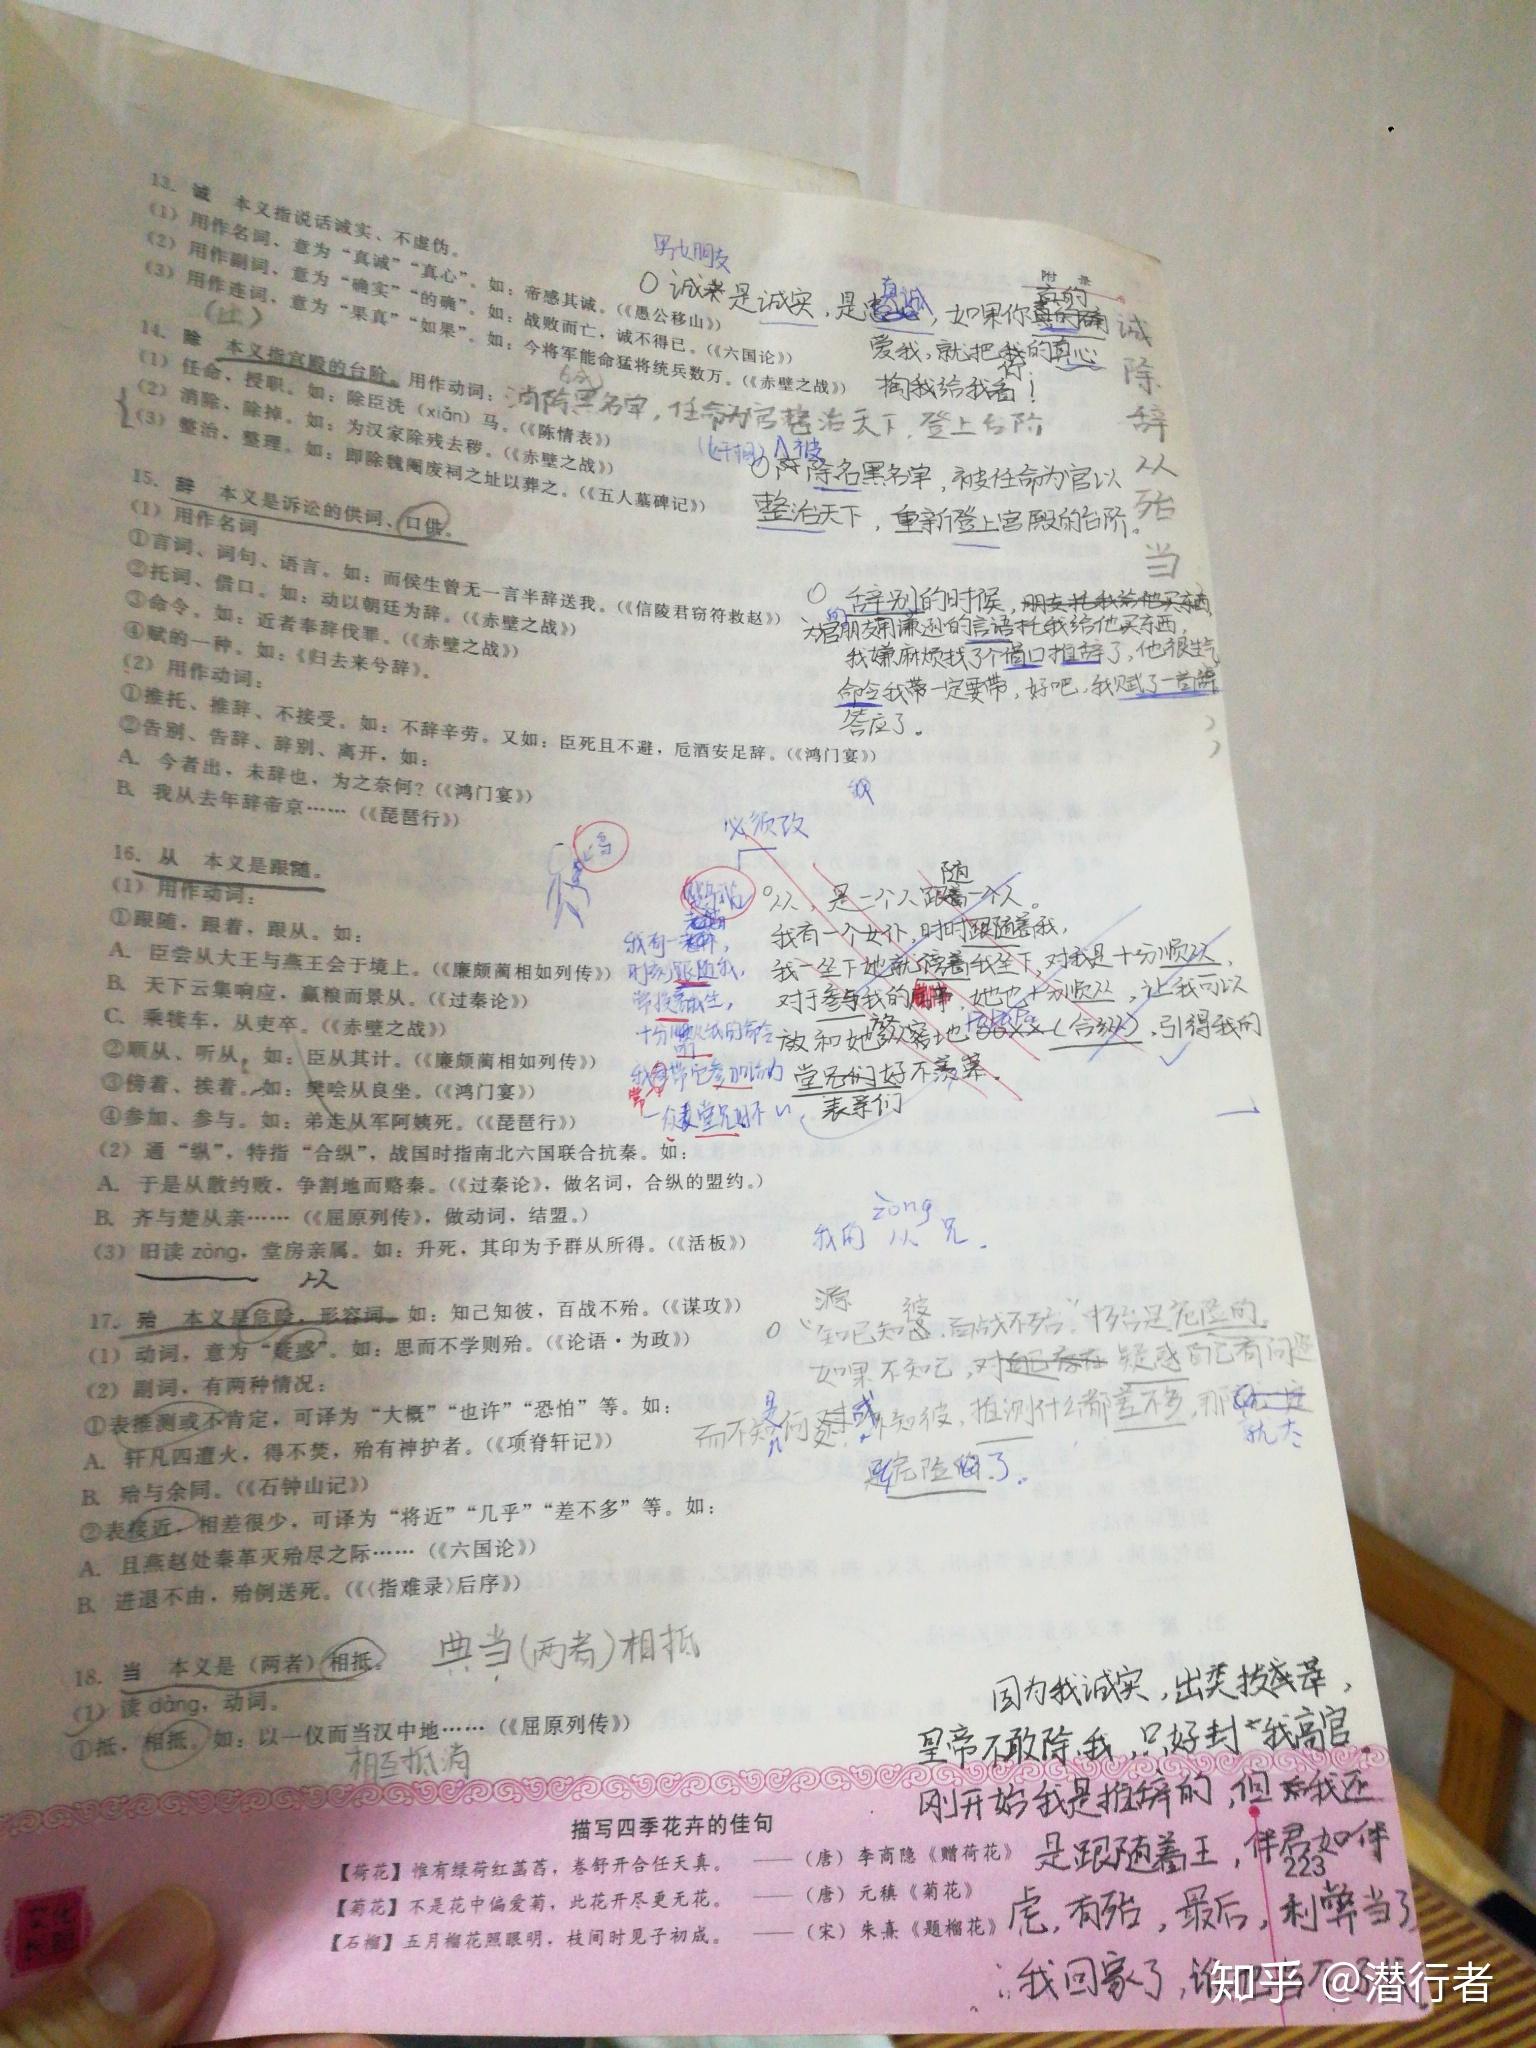 附 录
13. 诚 本义指说话诚实、不虚伪。
(1) 用作名词、意为“真诚”“真心”。如:帝感其诚。(《愚公移山》)
(2) 用作副词、意为“确实”“的确”。如:战败而亡,诚不得已。(《六国论》)
(3) 用作连词、意为“果真”“如果”。如:今将军能命猛将统兵数万。(《赤壁之战》)
男女朋友
诚是诚实,是
,如果你
爱我,就把我的真心
掏我给我看!
诚
除
辞
从
殆
当
14. 除 本义指宫殿的台阶。用作动词:
(1) 任命、授职。如:除臣洗(xiǎn)马。(《陈情表》)
(2) 消除、除掉。如:为汉家除残去秽。(《赤壁之战》)
(3) 整治、整理。如:即除魏阉废祠之址以葬之。(《五人墓碑记》)
消除黑名字,任命为官 治天下,登上台阶
除名黑名单,被任命为官以
整治天下,重新登上宫殿的台阶。
15. 辞 本义是诉讼的供词、口供。
(1) 用作名词
①言词、词句、语言。如:而侯生曾无一言半辞送我。(《信陵君窃符救赵》)
②托词、借口。如:动以朝廷为辞。(《赤壁之战》)
③命令。如:近者奉辞伐罪。(《赤壁之战》)
④赋的一种。如:《归去来兮辞》。
(2) 用作动词:
①推托、推辞、不接受。如:不辞辛劳。又如:臣死且不避,卮酒安足辞。(《鸿门宴》)
②告别、告辞、辞别、离开,如:
A. 今者出,未辞也,为之奈何?(《鸿门宴》)
B. 我从去年辞帝京……(《琵琶行》)
辞别的时候,朋友托我给他买东西,
为官的朋友用谦逊的言语托我给他买东西,
我嫌麻烦找了个借口推辞了,他很生气
命令我带一定要带,好吧,我赋了一首辞
答应了。
16. 从 本义是跟随。
(1) 用作动词:
①跟随,跟着,跟从。如:
A. 臣尝从大王与燕王会于境上。(《廉颇蔺相如列传》)
B. 天下云集响应,赢粮而景从。(《过秦论》)
C. 乘犊车,从吏卒。(《赤壁之战》)
②顺从、听从。如:臣从其计。(《廉颇蔺相如列传》)
③傍着、挨着。如:樊哙从良坐。(《鸿门宴》)
④参加、参与。如:弟走从军阿姨死。(《琵琶行》)
(2) 通“纵”,特指“合纵”,战国时指南北六国联合抗秦。如:
A. 于是从散约败,争割地而赂秦。(《过秦论》,做名词,合纵的盟约。)
B. 齐与楚从亲……(《屈原列传》,做动词,结盟。)
(3) 旧读 zòng,堂房亲属。如:升死,其印为予群从所得。(《活板》)
从
必须改
从,是一个人跟随一个人。
我有一个女仆,时时跟随着我,
我一坐下她就傍着我坐下,对我是十分顺从,
对于参与我的 ,她也十分顺从,让我可以
(合纵),引得我的
堂兄们好不羡慕。
表亲们
时刻跟随我,
十分顺从我的命令
zòng
我的 从 兄。
17. 殆 本义是危险,形容词。如:知己知彼,百战不殆。(《谋攻》)
(1) 动词,意为“疑惑”。如:思而不学则殆。(《论语·为政》)
(2) 副词,有两种情况:
①表推测或不肯定,可译为“大概”“也许”“恐怕”等。如:
A. 轩凡四遭火,得不焚,殆有神护者。(《项脊轩记》)
B. 殆与余同。(《石钟山记》)
②表接近,相差很少,可译为“将近”“几乎”“差不多”等。如:
A. 且燕赵处秦革灭殆尽之际……(《六国论》)
B. 进退不由,殆例送死。(《〈指难录〉后序》)
源
“知己知彼,百战不殆”
如果不知己,对自己存在疑惑自己有问题
知彼,推测什么都差不多,那
是危险 了。
18. 当 本义是(两者)相抵。
典当(两者)相抵
(1) 读 dàng,动词。
①抵,相抵。如:以一仪而当汉中地……(《屈原列传》)
相互抵消
因为我诚实,出类拔萃,
皇帝不敢除我,只好封我高官。
刚开始我是推辞的,但 我还
是跟随着王,伴君如伴
虎,有殆,最后,利弊当了
∴我回家了,谁
描写四季花卉的佳句
【荷花】惟有绿荷红菡萏,卷舒开合任天真。 ——(唐)李商隐《赠荷花》
【菊花】不是花中偏爱菊,此花开尽更无花。 ——(唐)元稹《菊花》
【石榴】五月榴花照眼明,枝间时见子初成。 ——(宋)朱熹《题榴花》
223
知乎 @潜行者